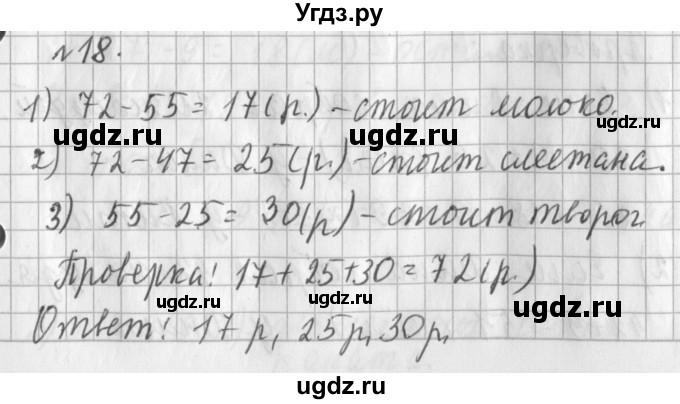 Угдз.ру
№18.
1) 72-55=17(р.) - стоит молоко.
ugdz.ru ugdz.ru
2) 72-47=25(р.) - стоит сметана.
3) 55-25=30(р) - стоит творог.
Проверка! 17+25+30=72(р.)
ugdz.ru ugdz.ru ugdz.ru
Ответ! 17 р, 25р, 30р,
ugdz.ru